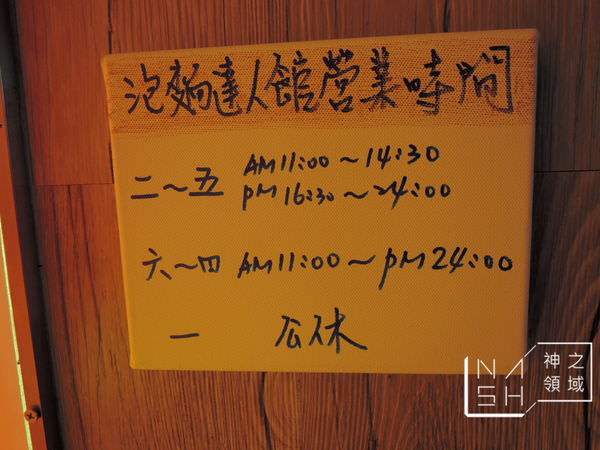 泡麵達人館營業時間
二～五 AM11:00～14:30
PM16:30～24:00
六～四 AM11:00～PM24:00
一 公休
NMSH
神之領域